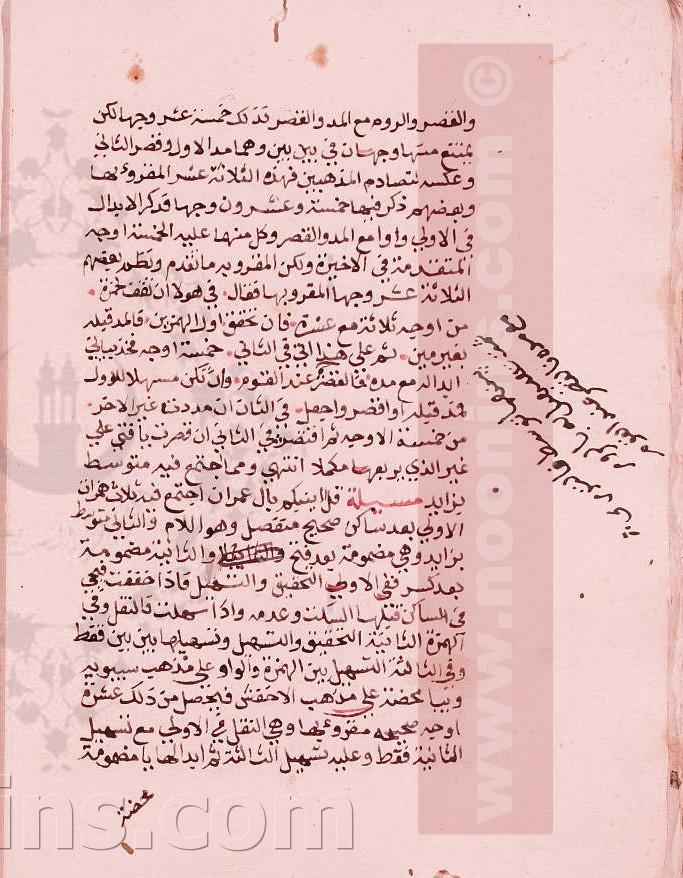 والقصر والروم مع المد والقصر فذلك خمسة عشر وجها لكن
يمتنع منها وجهان في بين بين وهما مد الاول وقصر الثاني
وعكسه لتصادم المذهبين فهذه الثلاثة عشر المقروء بها
وبعضهم ذكر فيها خمسة وعشرون وجها فذكر الابدال
في الاولي واوا مع المد والقصر وكل منها عليه الخمسة اوجه
المتقدمة في الاخيرة ولكن المقرو به ما تقدم ونظم بعضهم
الثلاثة عشر وجها المقرو بها فقال في هولا ان تقف لحمزة
من اوجه ثلاثة مع عشرة فان تحقق اول الهمزين فالمد قبله
بغير مين ثم علي هذا اتي في الثاني خمسة اوجه فخذ بياني
ابداله مع مده فالقصر عند القوم وان تكن مسهلا للاول
لمد قبله او اقصر واجعل في الثان ان مددت غير الاخر
من خمسة الاوجه ثم اقتصر في الثاني ان قصرت يا فتي علي
غير الذي بربعها مكملا انتهي ومما اجتمع فيه متوسط
بزايد مسيلة قل اانبيكم بال عمران اجتمع فيه ثلاث همزات
الاولي بعد ساكن صحيح منفصل وهو اللام والثاني متوسط
بزايد وهي مضمومة بعد فتح والثالثة مضمومة
بعد كسر ففي الاولي التحقيق والتسهيل فاذا حققت فيجي
في الساكن قبلها السكت وعدمه واذا سهلت فالنقل وفي
الهمزة الثانية التحقيق والتسهيل وتسهيلها بين بين فقط
وفي الثالثة التسهيل بين الهمزة والواو علي مذهب سيبويه
وبيا محضة علي مذهب الاخفش فيحصل من ذلك عشرة
اوجه صحيحه مقروء بها وهي النقل في الاولي مع تسهيل
الثانية فقط وعليه تسهيل الثالثة ثم ابدالها يا مضمومة
محضة
www.noormags.com ©
ins.com